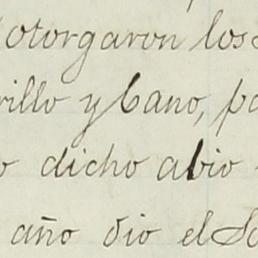 otorgaron los
rillo y Cano, pa
o dicho abio
año dio el So